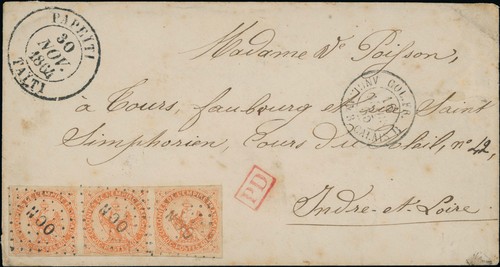 PAPEITI
30
NOV.
1864
TAITI
Madame Ve Poisson,
à Tours, faubourg et rue Saint
Simphorien, Cours du
nº 42,
Indre-et-Loire
PD
OCN
OCN
OCN